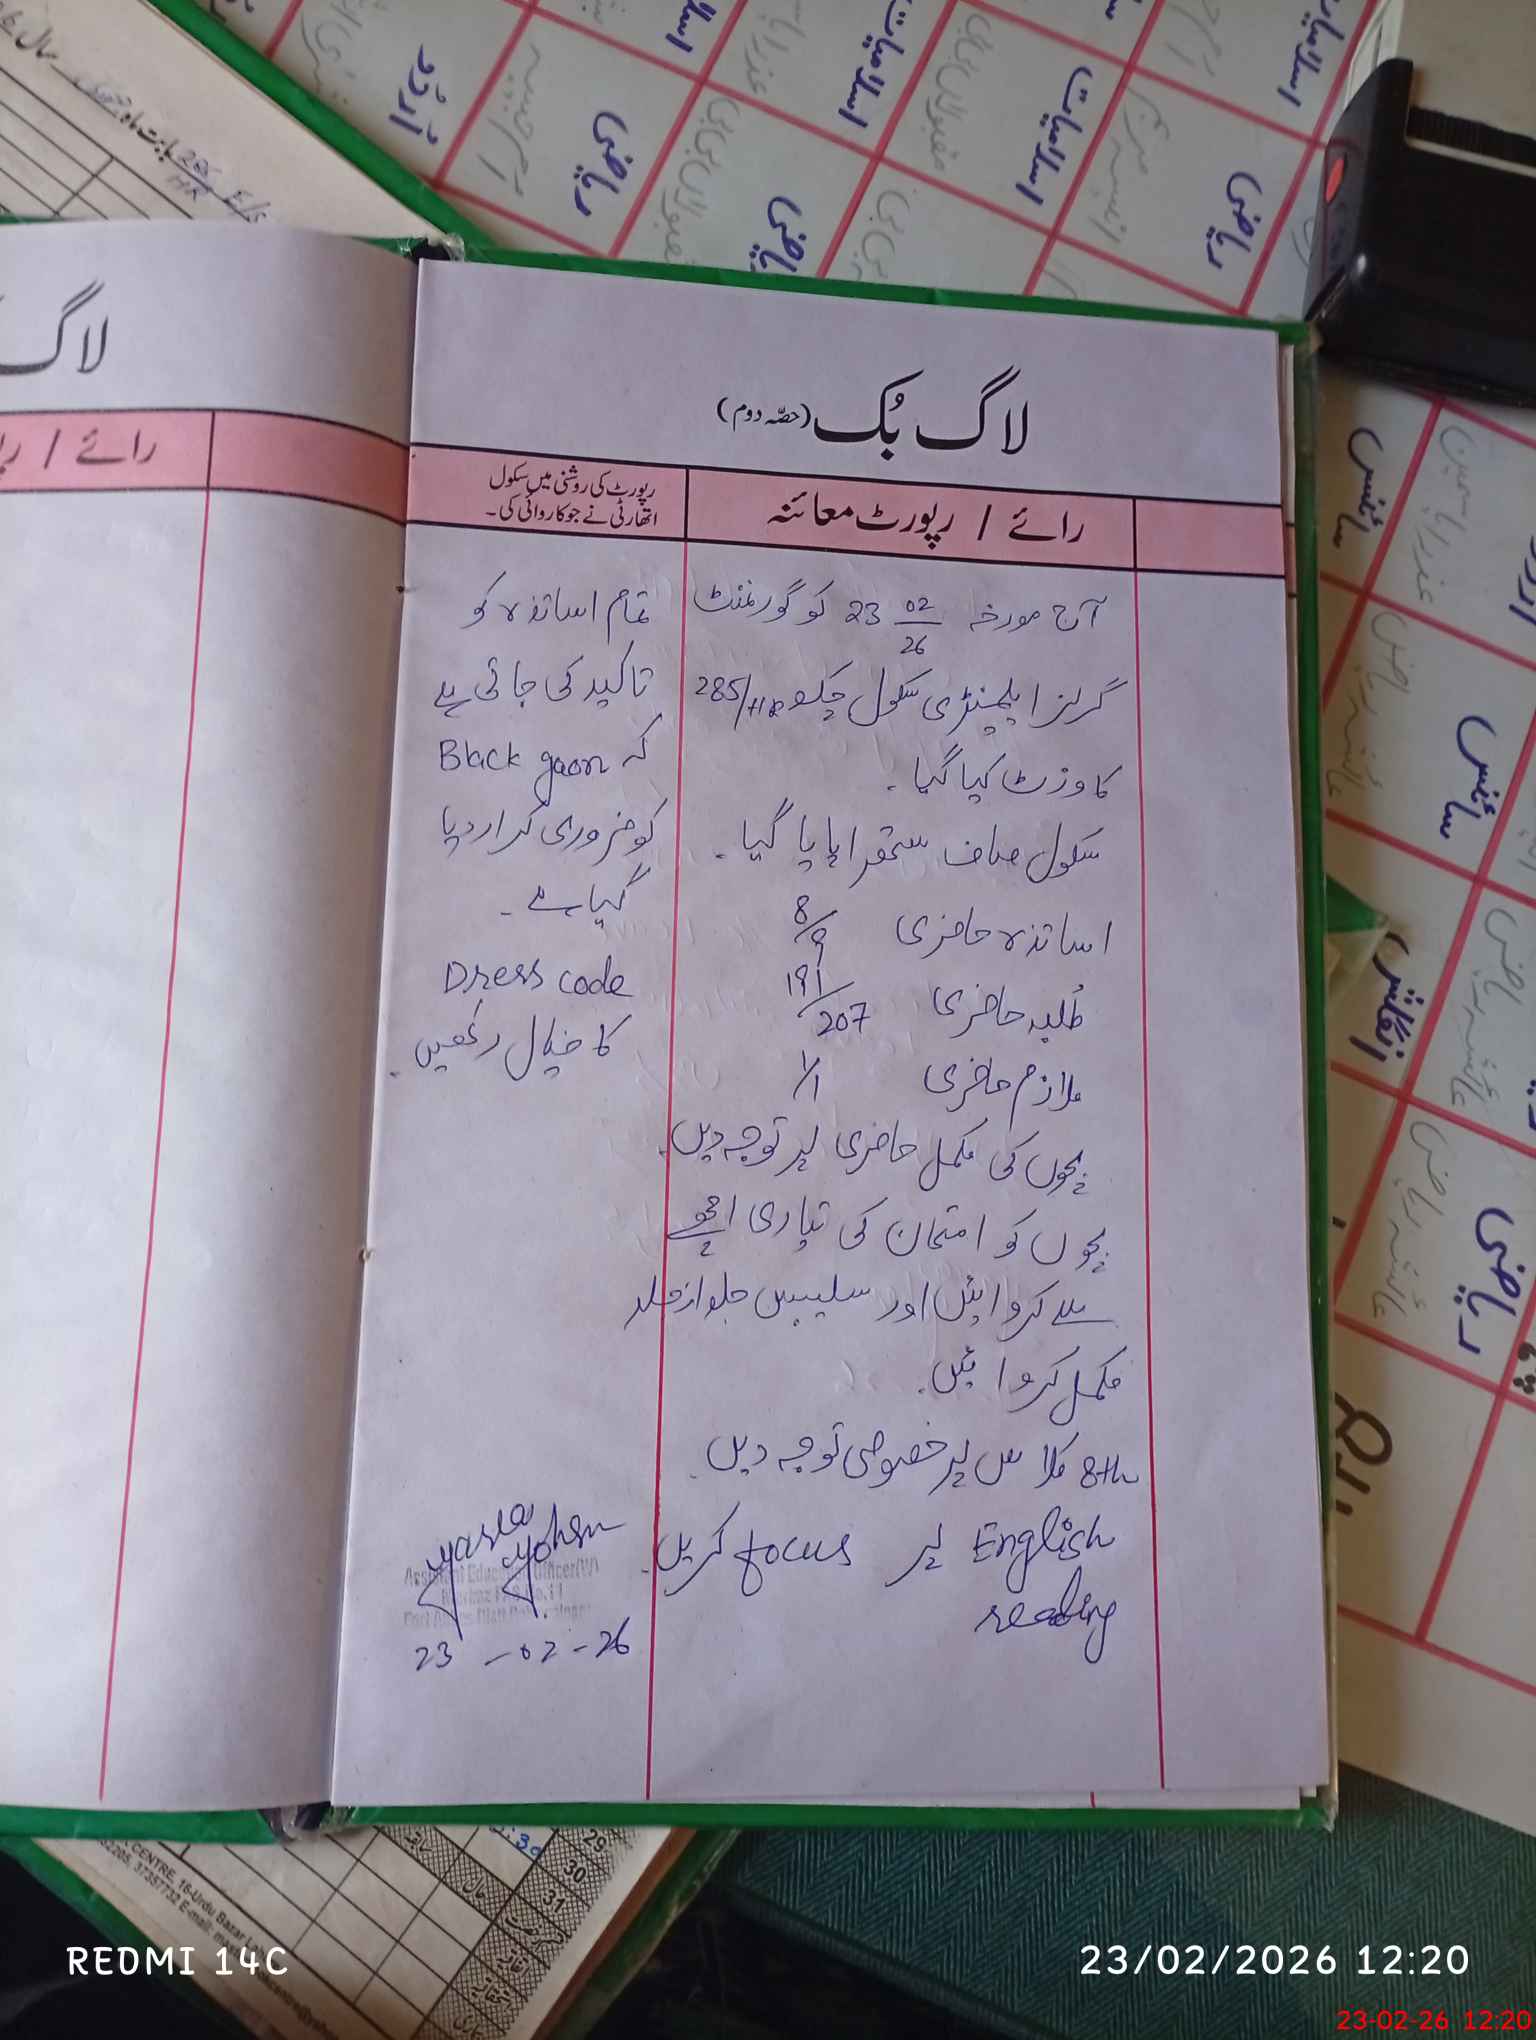 لاگ بُک (حصّہ دوم)
رائے / رپورٹ معائنہ
رپورٹ کی روشنی میں سکول
اتھارٹی نے جو کاروائی کی۔
آج مورخہ 23 02/26 کو گورنمنٹ
گرلز ایلیمنٹری سکول چک 285/HR
کا وزٹ کیا گیا۔
سکول صاف ستھرا پایا گیا۔
اساتذہ حاضری 8/9
طلبہ حاضری 191/207
ملازم حاضری 1/1
بچوں کی مکمل حاضری پر توجہ دیں۔
بچوں کو امتحان کی تیاری اچھے
سے کروائیں اور سلیبس جلد از جلد
مکمل کروائیں۔
8th کلاس پر خصوصی توجہ دیں۔
English پر focus کریں۔
reading
تمام اساتذہ کو
تاکید کی جاتی ہے
کہ Black gaon
کو ضروری کرار دیا
گیا ہے۔
Dress code
کا خیال رکھیں۔
Assistant Education Officer(W)
23-02-26
لاگ
رائے /
اردو
ریاضی
ریاضی
اسلامیات
اسلامیات
اسلامیات
ریاضی
سائنس
سائنس
ریاضی
بابت ماہ
سال
285/HR
E/S
29
30
31
CENTRE, 16-Urdu Bazar
37357732 E-mail:
REDMI 14C
23/02/2026 12:20
23-02-26 12:20